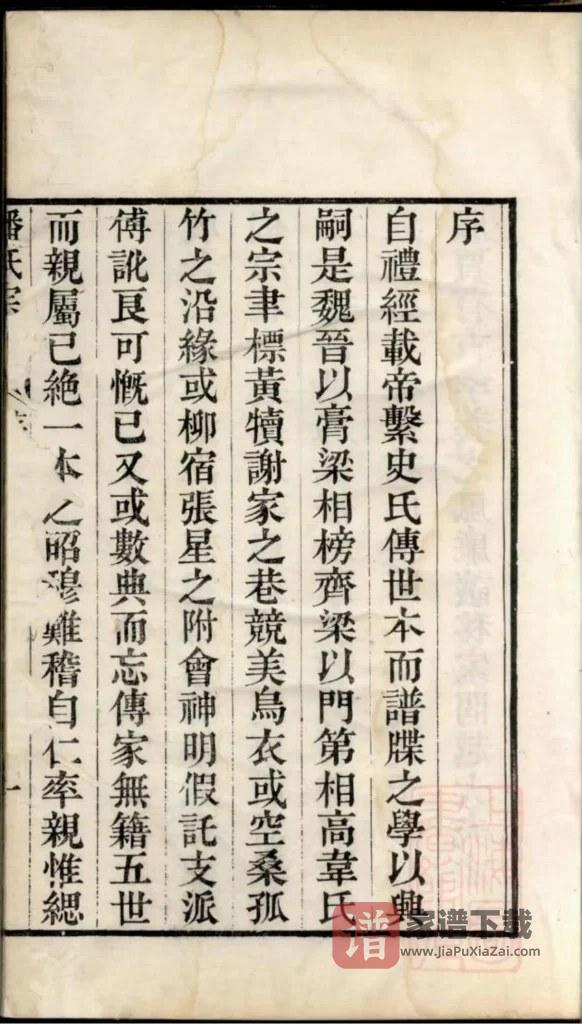 序
自禮經載帝繫史氏傳世本而譜牒之學以興
嗣是魏晉以膏梁相榜齊梁以門第相高韋氏
之宗聿標黃犢謝家之巷競美烏衣或空桑孤
竹之沿緣或柳宿張星之附會神明假託支派
傅訛良可慨已又或數典而忘傳家無籍五世
而親屬已絕一本之昭穆難稽自仁率親惟緦
潘氏宗
一
譜
家谱下载
www.JiaPuXiaZai.com